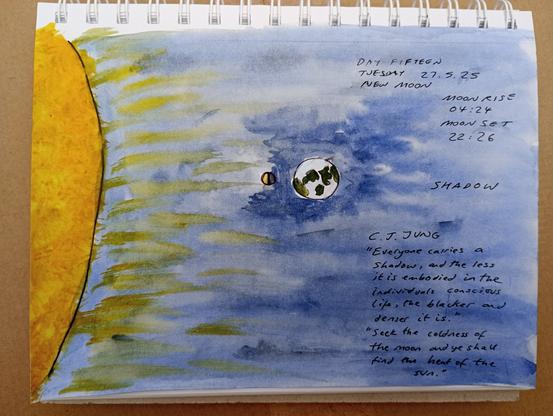 DAY FIFTEEN
TUESDAY 27.5.25
NEW MOON
MOON RISE
04:24
MOON SET
22:26
SHADOW
C.J. JUNG
"Everyone carries a
Shadow, and the less
it is embodied in the
individuals conscious
life, the blacker and
denser it is."
"Seek the coldness of
the moon and ye shall
find the heat of the
sun."